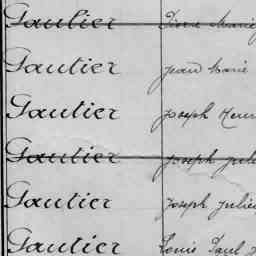 Gautier Pierre Marie
Gautier Jean Marie
Gautier Joseph Henri
Gautier Joseph Juli
Gautier Joseph Julien
Gautier Louis Paul J